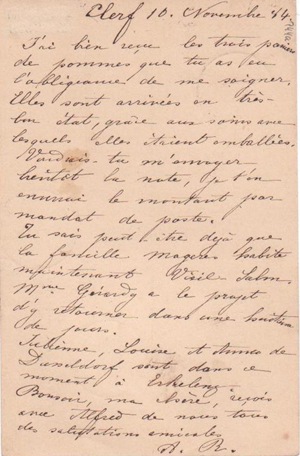 Clerf 10. Novembre 84
J'ai bien reçu les trois paniers
de pommes que tu as eu
l'obligeance de me soigner.
Elles sont arrivées en très-
bon état, grâce aux soins avec
lesquels elles étaient emballées.
Voudrais-tu m'envoyer
bientôt la note, je t'en
enverrai le montant par
mandat de poste.
Tu sais peut-être déjà que
la famille Mageres habite
maintenant Vieil Salm
Mme Gérardy a le projet
d'y retourner dans une huitaine
de jours.
Julienne, Louise et Anna de
Dusseldorf sont dans ce
moment à Erkelenz
Bonsoir, ma chère, reçois
avec Alfred de nous tous
des salutations amicales
A. R.